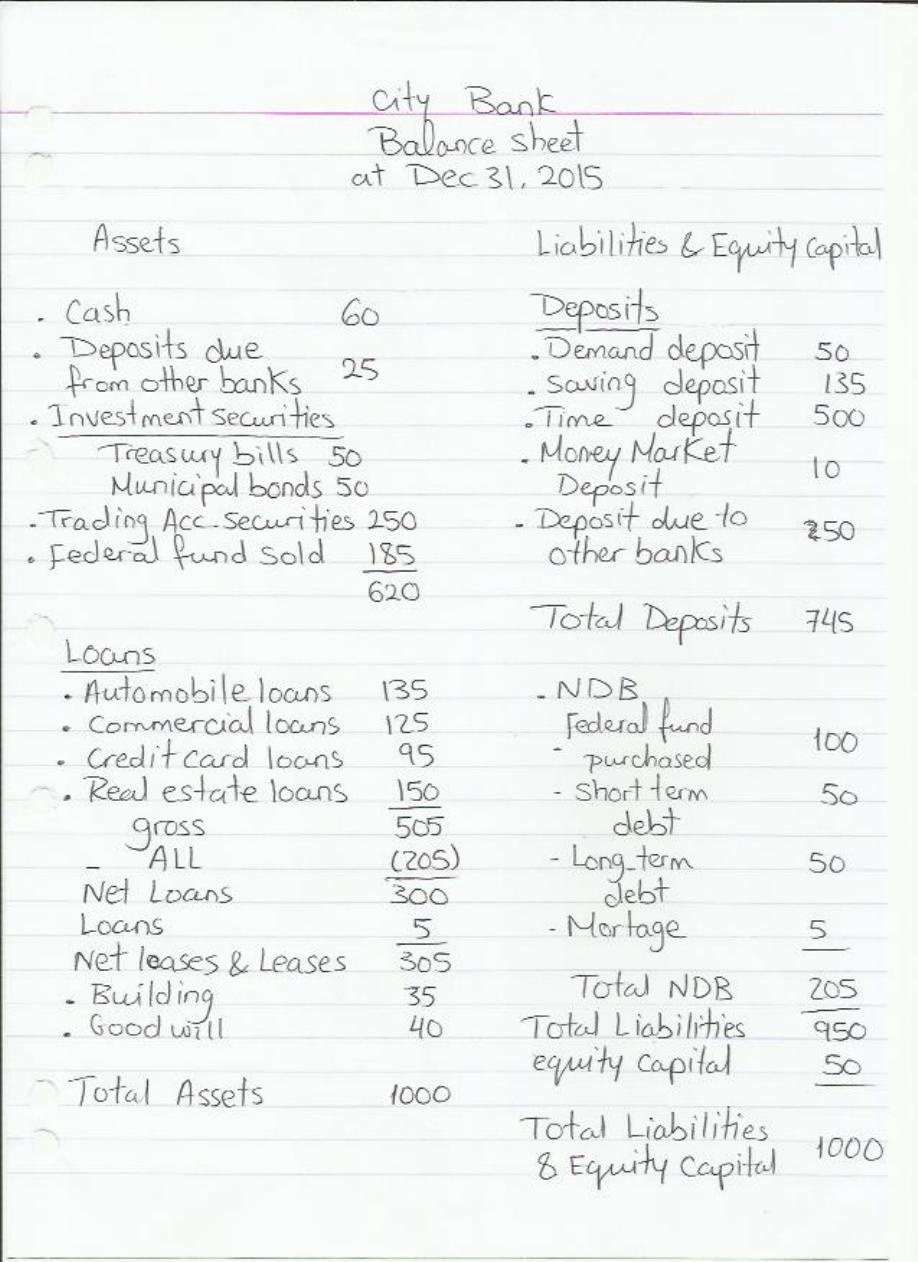 City Bank
Balance sheet
at Dec 31, 2015
Assets
. Cash 60
. Deposits due
from other banks 25
. Investment securities
Treasury bills 50
Municipal bonds 50
. Trading Acc. securities 250
. Federal fund sold 185
620
Loans
. Automobile loans 135
. Commercial loans 125
. Credit card loans 95
. Real estate loans 150
gross 505
- ALL (205)
Net Loans 300
Loans 5
Net leases & Leases 305
. Building 35
. Good will 40
Total Assets 1000
Liabilities & Equity capital
Deposits
. Demand deposit 50
. saving deposit 135
. Time deposit 500
. Money Market
Deposit 10
. Deposit due to
other banks 50
Total Deposits 745
. NDB
Federal fund
- purchased 100
- Short term 50
debt
- Long-term 50
debt
- Mortage 5
Total NDB 205
Total Liabilities 950
equity capital 50
Total Liabilities
& Equity Capital 1000